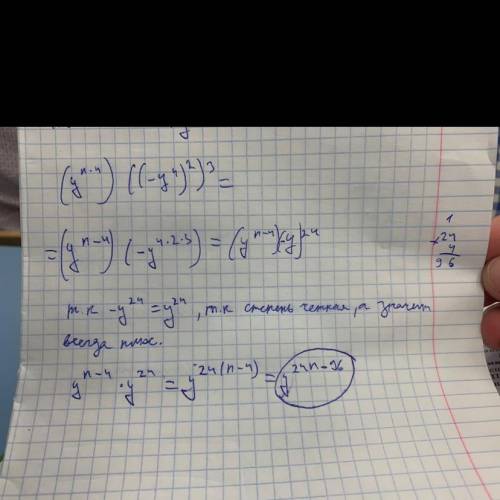 (y^{n-4}) ((-y^4)^2)^3 =
= (y^{n-4}) (-y^{4·2·3}) = (y^{n-4})(-y)^{24}
1
× 24
4
96
т.к -y^{24} = y^{24}, т.к степень четная, а значит
всегда полож.
y^{n-4} · y^{24} = y^{24(n-4)} = y^{24n-96}